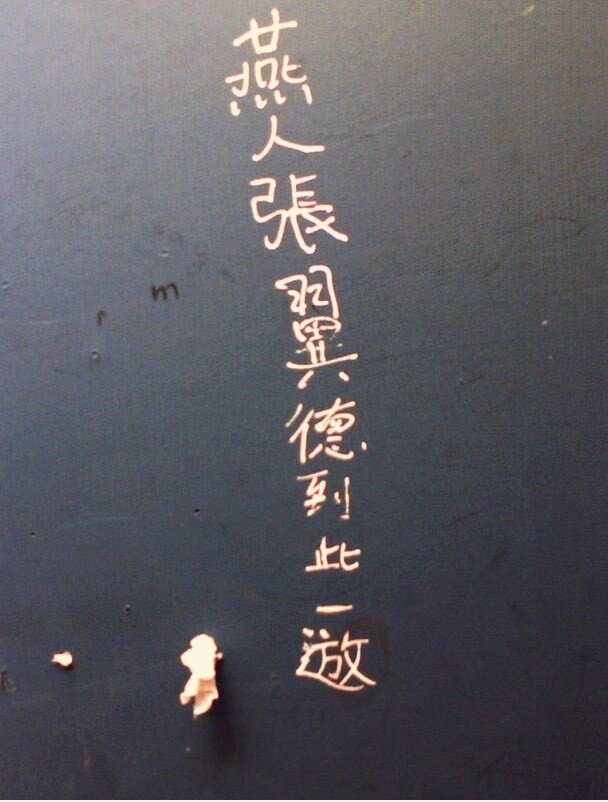 燕人張翼德到此一遨
m
r